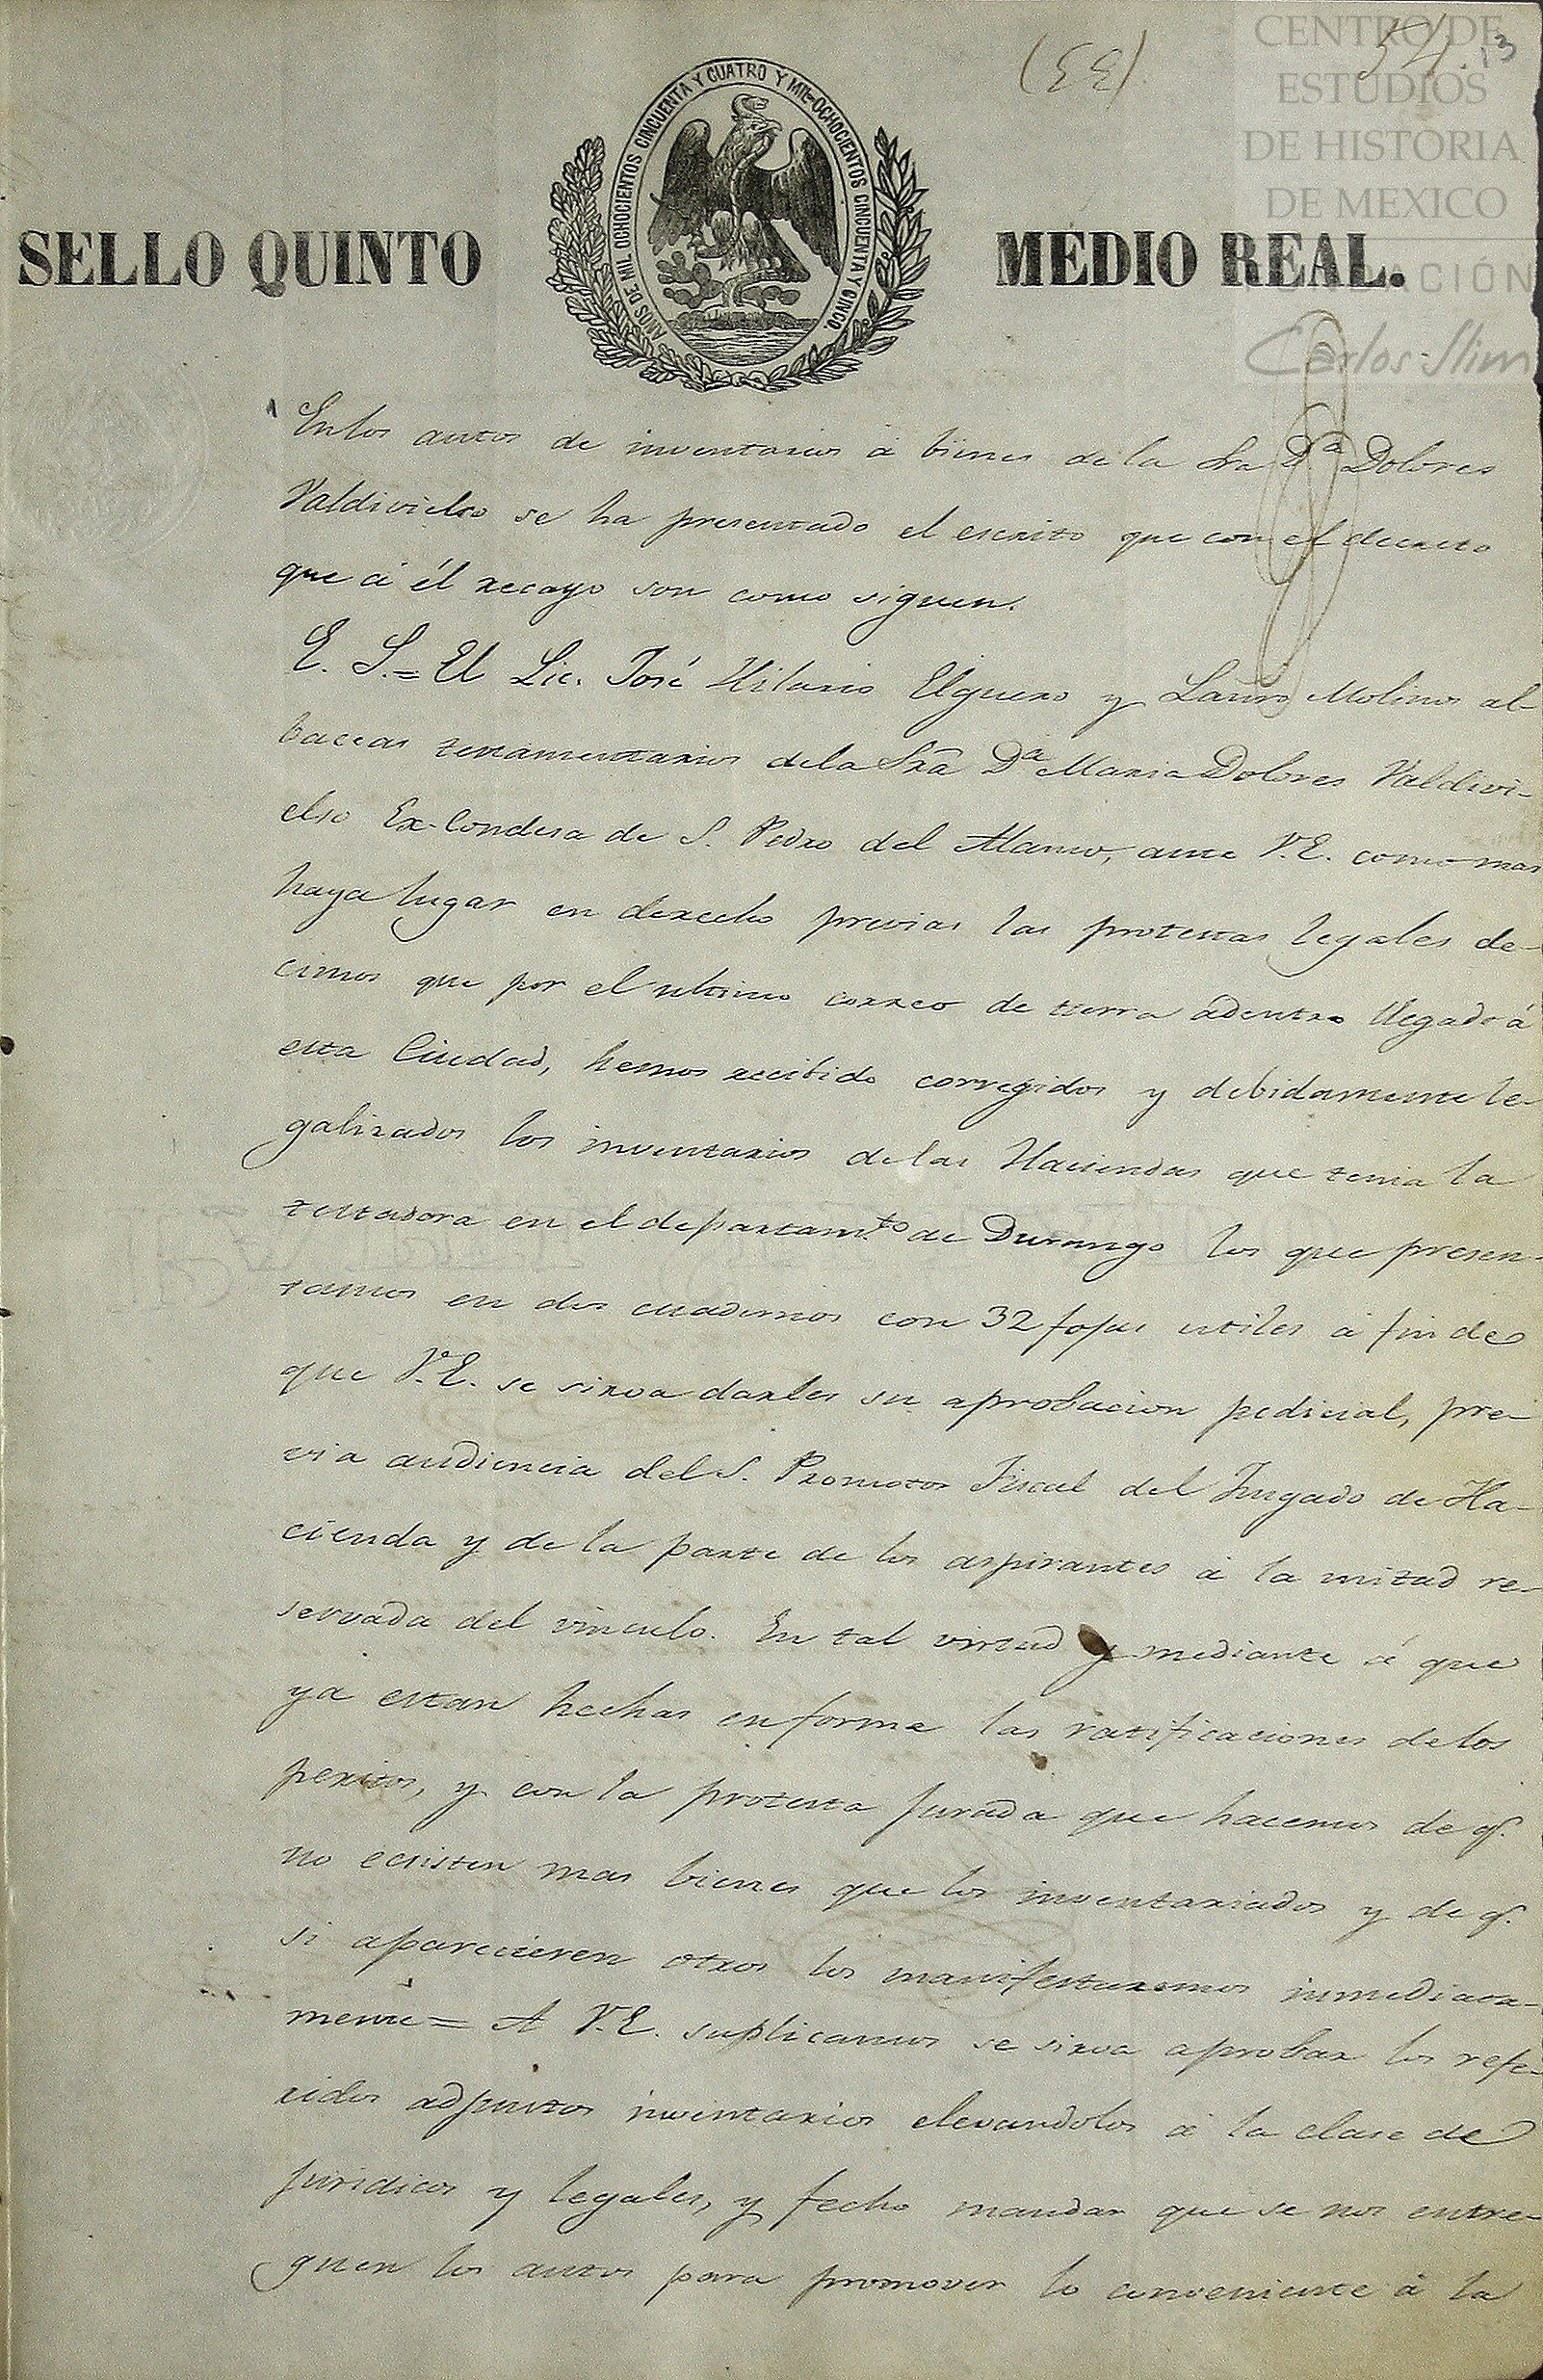 (EE)
54. 13
CENTRO DE
ESTUDIOS
DE HISTORIA
DE MEXICO
FUNDACIÓN
Carlos Slim
AÑOS DE MIL OCHOCIENTOS CINCUENTA Y CUATRO Y MIL OCHOCIENTOS CINCUENTA Y CINCO
SELLO QUINTO MEDIO REAL.
En los autos de inventarios á bienes de la Sra D.ª Dolores
Valdivielso se ha presentado el escrito que con el decreto
que á él recayo son como siguen.
E. S. = El Lic. José Hilario Elguero y Lauro Molinos al-
baceas testamentarios de la Srã Dª Maria Dolores Valdivi-
elso Ex-Condesa de S. Pedro del Alamo, ante V.E. como mas
haya lugar en derecho previas las protestas legales de-
cimos que por el ultimo correo de tierra adentro llegado á
esta Ciudad, hemos recibido corregidos y debidamente le-
galizados los inventarios de las Haciendas que tenia la
testadora en el departam.to de Durango los que presen-
tamos en dos cuadernos con 32 fojas utiles á fin de
que V.E. se sirva darles su aprobacion judicial, pre-
via audiencia del S. Promotor Fiscal del Juzgado de Ha-
cienda y de la parte de los aspirantes á la mitad re-
servada del vinculo. En tal virtud y mediante á que
ya estan hechas en forma las ratificaciones de los
peritos, y con la protesta jurada que hacemos de q.
no ecsisten mas bienes que los inventariados y de q.
si aparecieren otros los manifestaremos inmediata-
mente = A V.E. suplicamos se sirva aprobar los refe-
ridos adjuntos inventarios elevandolos á la clase de
juridicos y legales, y fecho mandar que se nos entre-
guen los autos para promover lo conveniente á la